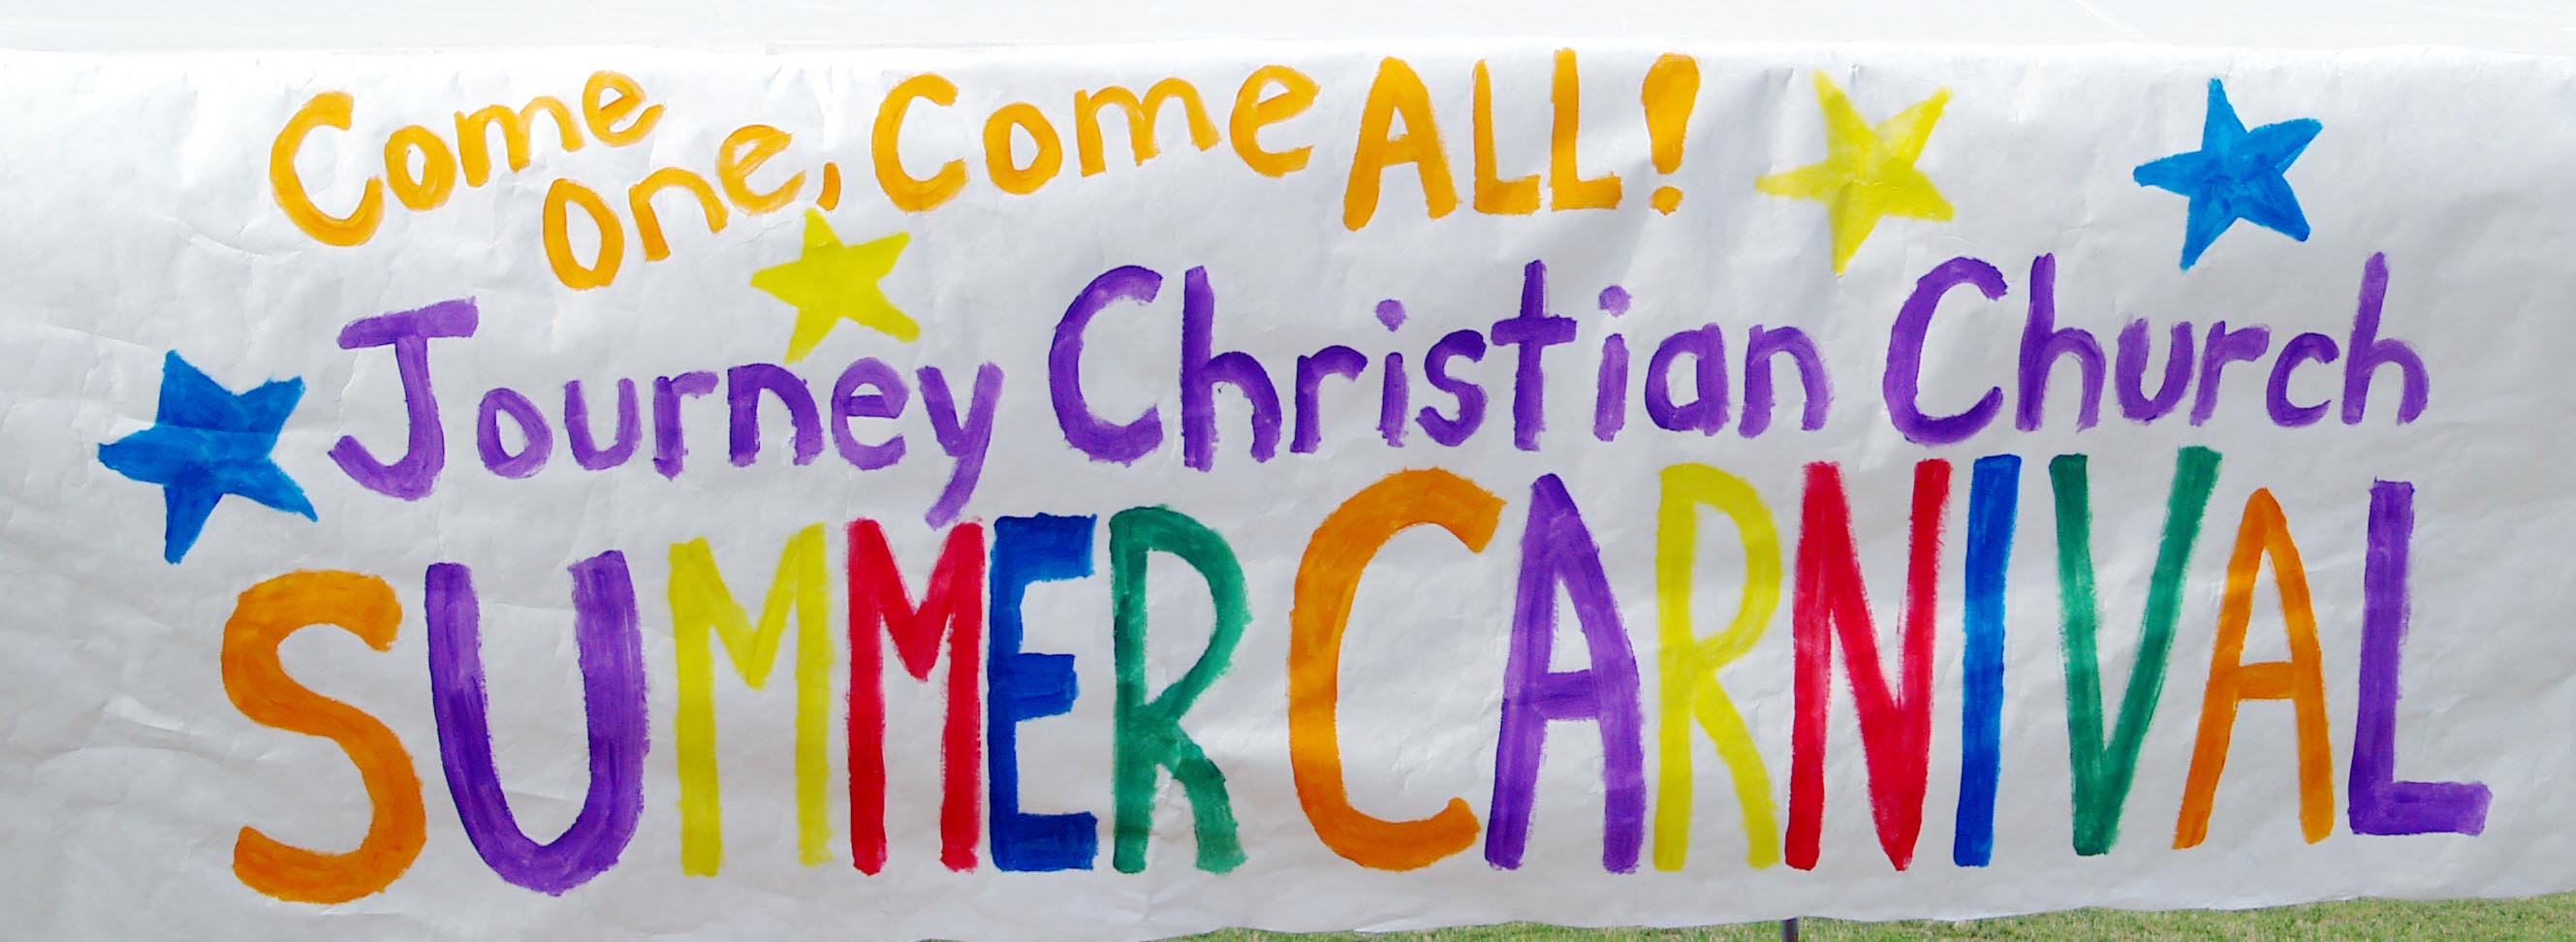 Come one, Come ALL!
Journey Christian Church
SUMMER CARNIVAL